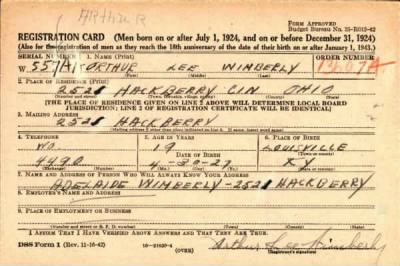 ARTHUR
FORM APPROVED
Budget Bureau No. 33-R015-42
REGISTRATION CARD (Men born on or after July 1, 1924, and on or before December 31, 1924)
(Also for the registration of men as they reach the 18th anniversary of the date of their birth on or after January 1, 1943.)
SERIAL NUMBER 1. NAME (Print) ORDER NUMBER
W. 557A ORTHUR LEE WIMBERLY 1307A
(First) (Middle) (Last)
2. PLACE OF RESIDENCE (Print)
2521 HACKBERRY CIN OHIO
(Number and street) (Town, township, village or city) (County) (State)
[THE PLACE OF RESIDENCE GIVEN ON LINE 2 ABOVE WILL DETERMINE LOCAL BOARD
JURISDICTION; LINE 2 OF REGISTRATION CERTIFICATE WILL BE IDENTICAL]
3. MAILING ADDRESS
2521 HACKBERRY
[Mailing address if other than place indicated on line 2. If same, insert word same]
4. TELEPHONE 5. AGE IN YEARS 6. PLACE OF BIRTH
WO. 19 LOUISVILLE
DATE OF BIRTH
4490 4-30-27 KY
(Exchange) (Number) (Mo.) (Day) (Yr.) (State or country)
7. NAME AND ADDRESS OF PERSON WHO WILL ALWAYS KNOW YOUR ADDRESS
ADELAIDE WIMBERLY-2521 HACKBERRY
8. EMPLOYER'S NAME AND ADDRESS
9. PLACE OF EMPLOYMENT OR BUSINESS
(Number and street or R. F. D. number) (Town) (County) (State)
I AFFIRM THAT I HAVE VERIFIED ABOVE ANSWERS AND THAT THEY ARE TRUE.
DSS Form 1 (Rev. 11-16-42) (OVER) Arthur Lee Wimberly